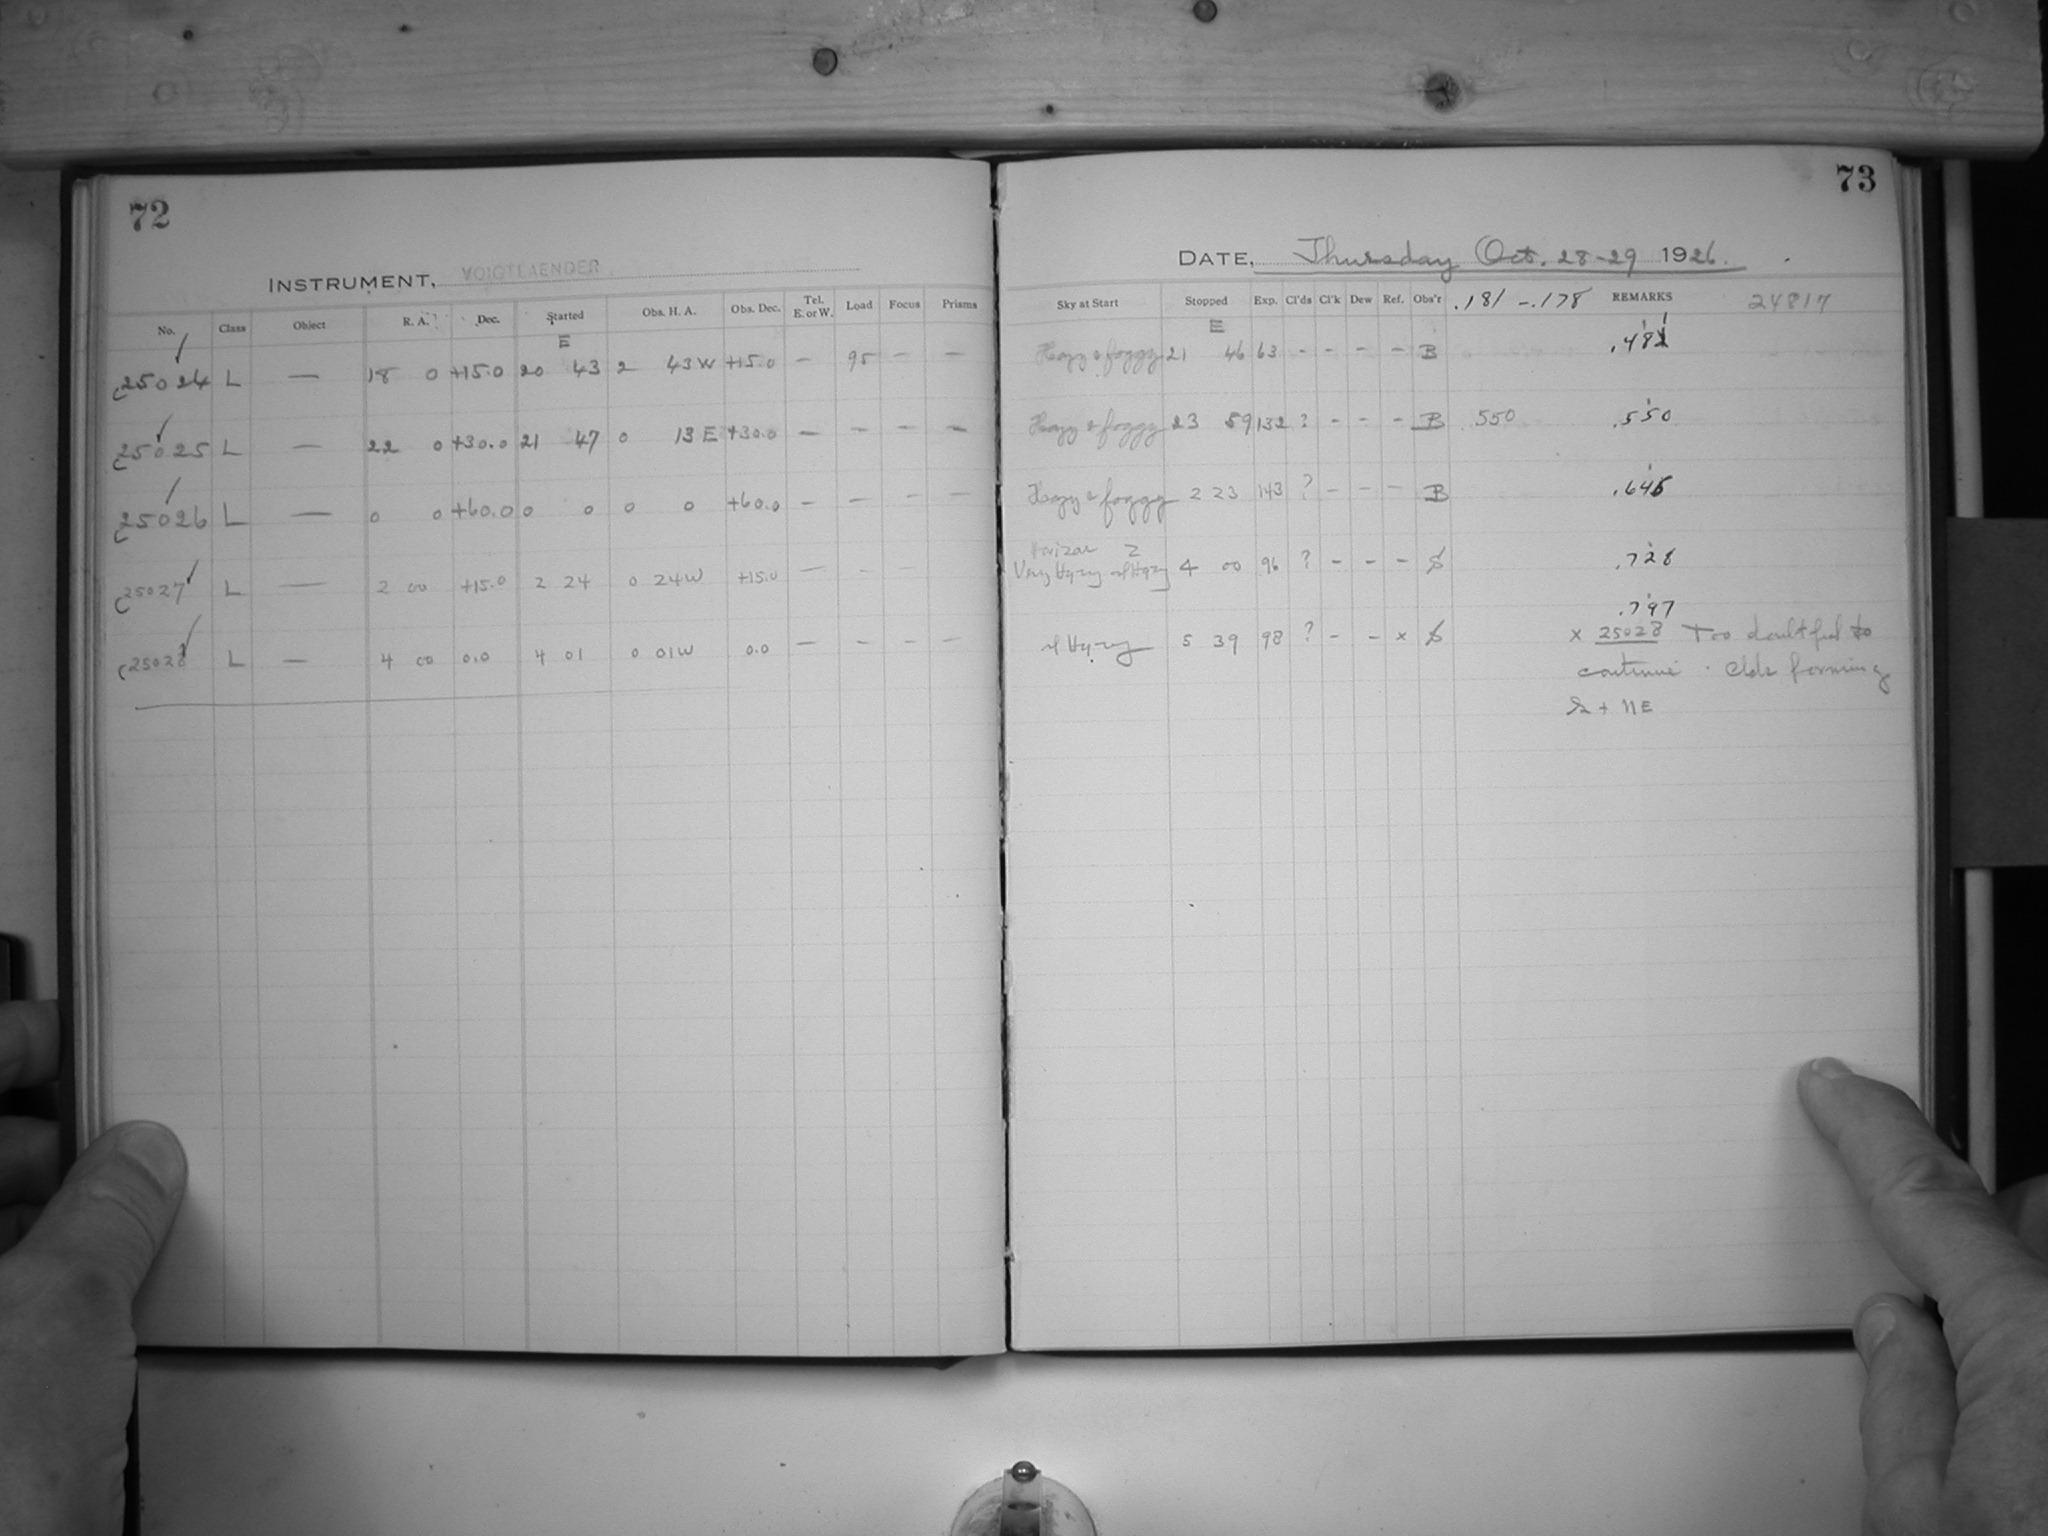 72
INSTRUMENT, VOIGTLAENDER
No. Class Object R. A. Dec. Started Obs. H. A. Obs. Dec. Tel. E. or W. Load Focus Prisms
E
25024 L — 18 0 +15.0 20 43 2 43 W +15.0 — 95 — —
25025 L — 22 0 +30.0 21 47 0 13 E +30.0 — — — —
25026 L — 0 0 +60.0 0 0 0 0 +60.0 — — — —
25027 L — 2 00 +15.0 2 24 0 24 W +15.0 — - -
25028 L — 4 00 0.0 4 01 0 01 W 0.0 — - - —
73
DATE, Thursday Oct. 28-29 1926.
Sky at Start Stopped Exp. Cl'ds Cl'k Dew Ref. Obs'r .181 -.178 REMARKS 24817
E
Hazy & foggy 21 46 63 - - - - B .482
Hazy & foggy 23 59 132 ? - - - B .550 .550
Hazy & foggy 2 23 143 ? - - - B .645
Horizon Z
Very Hazy Hazy 4 00 96 ? - - - S .728
.797
Hazy 5 39 98 ? - - x S x 25028 Too doubtful to
continue . Clds forming
+ NE